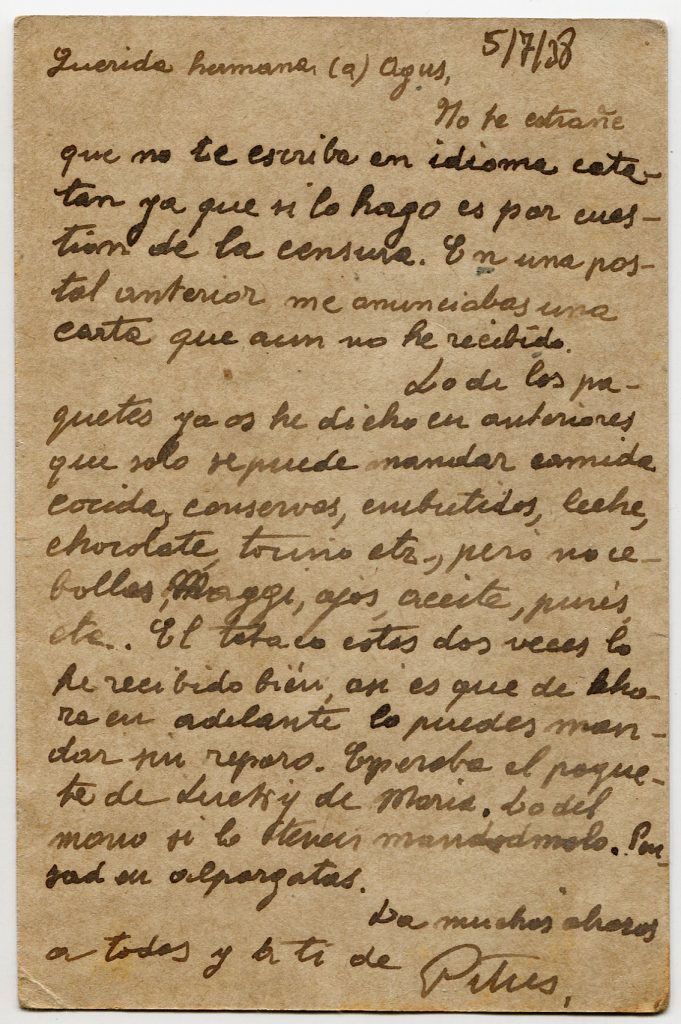 5/7/38
Querida hermana (a) Agus,
No te extrañe
que no te escriba en idioma cata-
lan ya que si lo hago es por cues-
tion de la censura. En una pos-
tal anterior me anunciabas una
carta que aun no he recibido.
Lo de los pa-
quetes ya os he dicho en anteriores
que solo se puede mandar comida
cocida, conservas, embutidos, leche,
chocolate, tocino etz., pero no ce-
bollas, Maggi, ajos, aceite, purés,
etc.. El tabaco estas dos veces lo
he recibido bién, asi es que de aho-
ra en adelante lo puedes man-
dar sin reparo. Esperaba el paque-
te de y de Maria. Lo del
mono si lo teneis mandádmelo. Pen-
sad en alpargatas.
Da muchos abrazos
a todos y a ti de